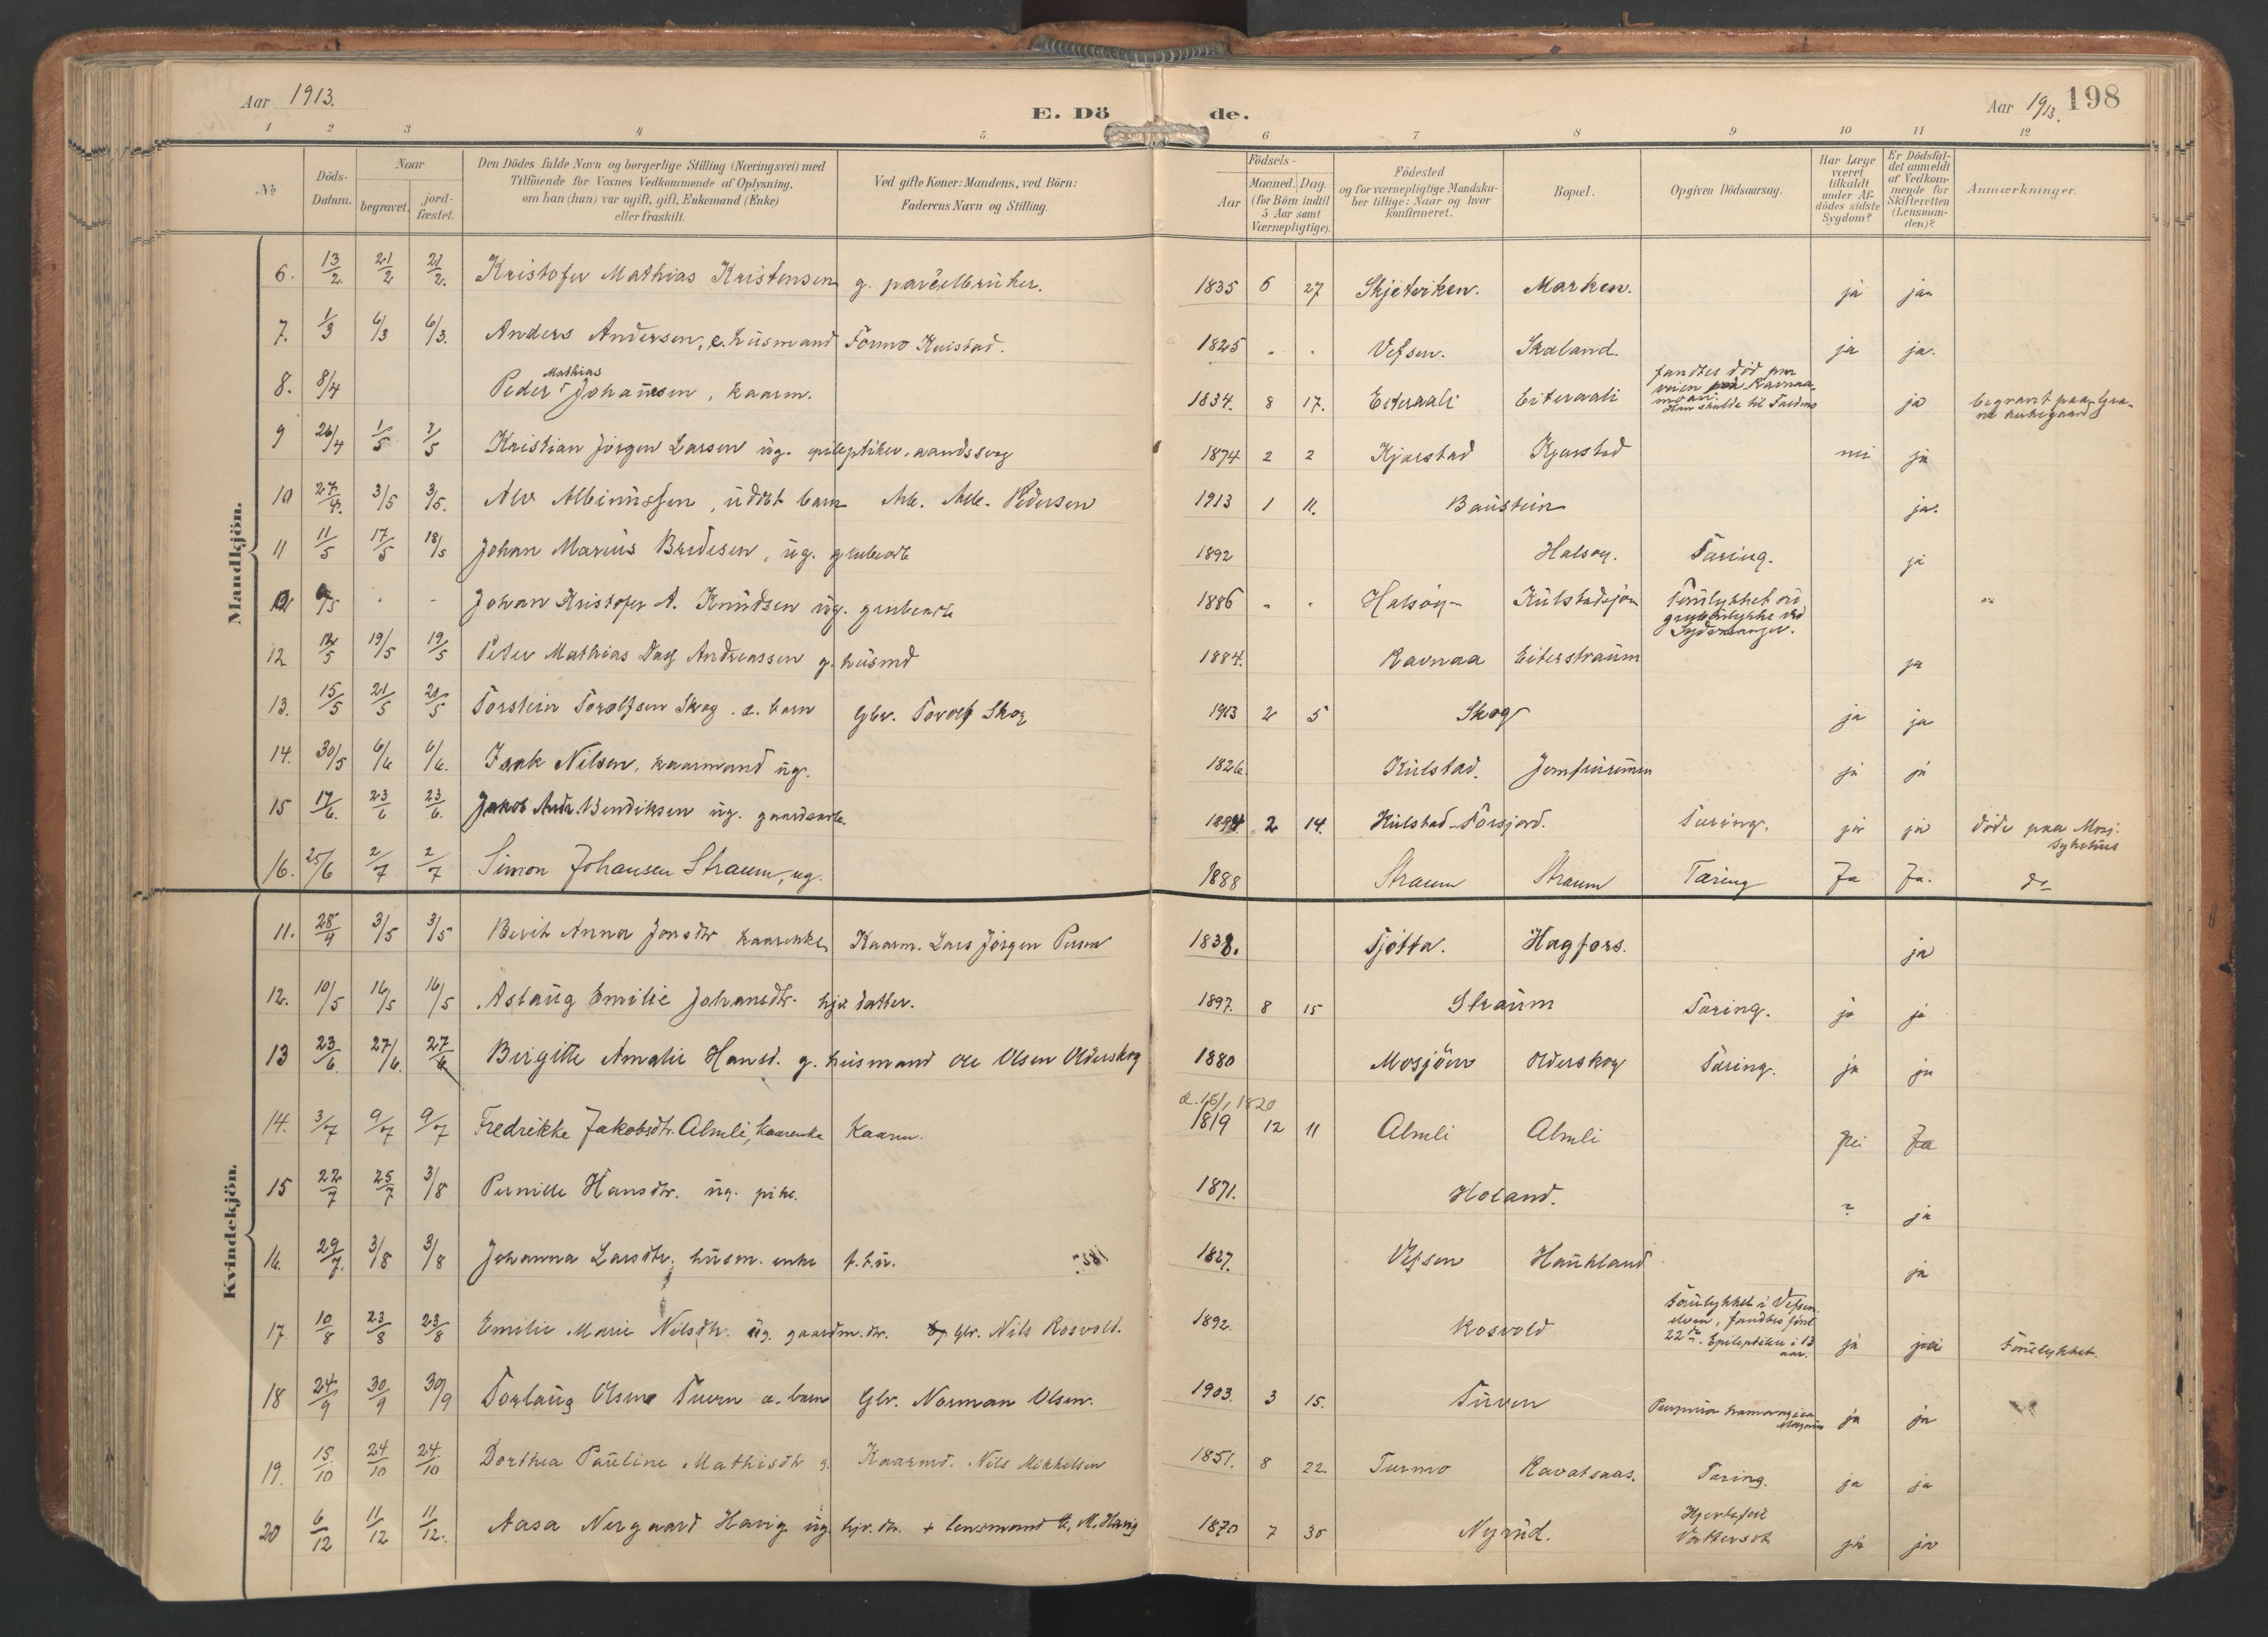 Aar 1913.
E. Dö de.
Aar 1913. 198
1 2 3 4 5 6 7 8 9 10 11 12
No
Döds-Datum.
Naar
begravet.
jord-fæstet.
Den Dödes fulde Navn og borgerlige Stilling (Næringsvei) med
Tilföiende for Voxnes Vedkommende af Oplysning,
om han (hun) var ugift, gift, Enkemand (Enke)
eller fraskilt.
Ved gifte Koner: Mandens, ved Börn:
Faderens Navn og Stilling.
Födsels-
Aar
Maaned. Dag.
(for Börn indtil
5 Aar samt
Værnepligtige).
Födested
og for værnepligtige Mandska-
ber tillige: Naar og hvor
konfirmeret.
Bopæl.
Opgiven Dödsaarsag.
Har Læge
været
tilkaldt
under Af-
dödes sidste
Sygdom?
Er Dödsfal-
det anmeldt
af Vedkom-
mende for
Skifteretten
(Lensman-
den)?
Anmærkninger.
Mandkjön.
6. 13/2 21/2 21/2. Kristofer Mathias Kristensen g. parcelbruker. 1835 6 27 Marken. ja ja
7. 1/3 6/3 6/3. Anders Andersen, e. husmand Formo 1825 . . Vefsen. Skaland. ja ja.
8. 8/4 Peder Mathias Johansen, kaarm. 1834. 8 17. Eiteraali Eiteraali fandtes död paa
veien Ravnaa-
moan.
Han skulde til ja begravt paa Gra-
ne kirkegaard
9 26/4 1/5 1/5 Kristian Jörgen Larsen ug. epileptiker, aandssvag 1874 2 2 Kjærstad Kjærstad nei ja
10 27/4. 3/5 3/5. Alv Albinussen, udöbt barn Arb. Pedersen 1913 1 11. Baustein ja.
11 11/5 17/5 18/5 Johan Marius Bredesen, ug. grubearb 1892 Halsøy. Tæring. ja
9/5 . - Johan Kristofer A. Knudsen ug. grubearb 1886 - - Halsøy Kulstadsjøen Forulykket
grubeulykke ved
Sydvaranger. "
12 12/5 19/5 19/5 Peter Mathias Dass Andreassen g. husmd 1884. Ravnaa Eiterstraum ja
13. 15/5 21/5 21/5 Torstein Torolfsen Skog . æ. barn Gbr. Torolf Skog 1913 2 5 Skog ja ja
14. 30/5 6/6 6/6. Isak Nilsen, kaarmand ug. 1826. Kulstad. Jomfruremmen ja ja
15 17/6. 23/6 23/6. Jakob Andr. Bendiksen ug. gaardsarb. 1894 2 14. Kulstad-Forsjord. Tæring. ja ja döde paa Mosj.
sykehus
16. 25/6 2/7 2/7 Simon Johansen Straum, ug. 1888 Straum Straum Tæring Ja Ja. do
Kvindekjön.
11. 28/4 3/5 3/5 Berit Anna Jonsdtr kaarenke Kaarm. Lars Jörgen 1838. Tjötta. Hagfors. ja
12. 10/5 16/5 16/5 Aslaug Emilie Johansdtr. hjv. datter. 1897. 8 15 Straum Tæring. ja ja
13 23/6. 27/6. 27/6 Birgitte Amalie Hansd. g. husmand Ole Olsen Olderskog 1880 Mosjöen Olderskog Tæring. ja ja
14. 3/7 9/7 9/7 Fredrikke Jakobsdtr. Almli, kaarenke Kaarm. d. 16/1 1820
1819 12 11 Almli Almli Nei Ja
15 22/7 25/7 3/8 Pernille Hansdtr. ug. pike. 1871. Holand. ? ja
16. 29/7. 3/8 3/8 Johanna Larsdtr. husm. enke f.f.u. 1827. Vefsen Haukland ja
17. 10/8 23/8 23/8 Emilie Marie Nilsdtr. ug. gaardm. dtr. Gbr. Nils Rosvold. 1892. Rosvold Forulykket i Vefsen
elven, fandtes först
22de. Epileptiker i 13
aar. ja ja Forulykket.
18 24/9 30/9 30/9 Torlaug Olsen Tuven æ. barn Gbr. Norman Olsen. 1903. 3 15. Tuven Purpura ja ja
19. 15/10 24/10 24/10 Dorthea Pauline Mathisdtr g. Kaarmd. Nils Mikkelsen 1851. 8 22. Turmo Kavatsaas. Tæring. ja ja
20 6/12 11/12 11/12. Aasa Nergaard Havig ug. hjv. dtr. + lensmand E. M. Havig 1870 7 30 Nyrud. Hjertefeil
Vattersot ja ja